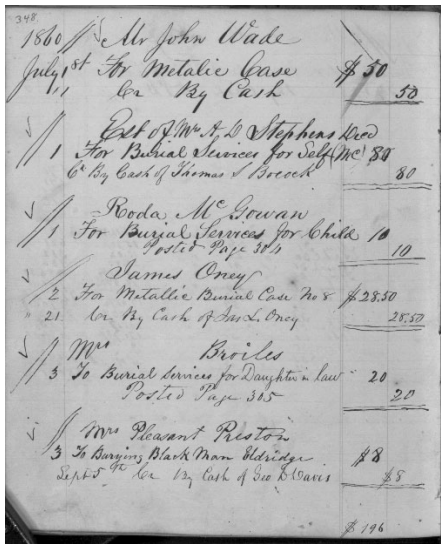 348
1860 // Mr John Wade
July 1st For Metalic Case $50
" 11 Cr By Cash 50
Est of Mrs A. D Stephens Decd
// 1 For Burial Services for Self (MC) 80
Cr By Cash of Thomas S Bocock 80
Roda McGowan
// 1 For Burial Services for Child 10
Posted Page 304 10
James Oney
// 2 For Metallic Burial Case No 8 $28.50
" 21 Cr By Cash of Jas L. Oney 28.50
// Mrs Broiles
3 To Burial Services for Daughter in law 20
Posted Page 305 20
// Mrs Pleasant Preston
3 To Burying Black Man Eldridge $8
Sept 5th Cr By Cash of Geo D Davis $8
$196